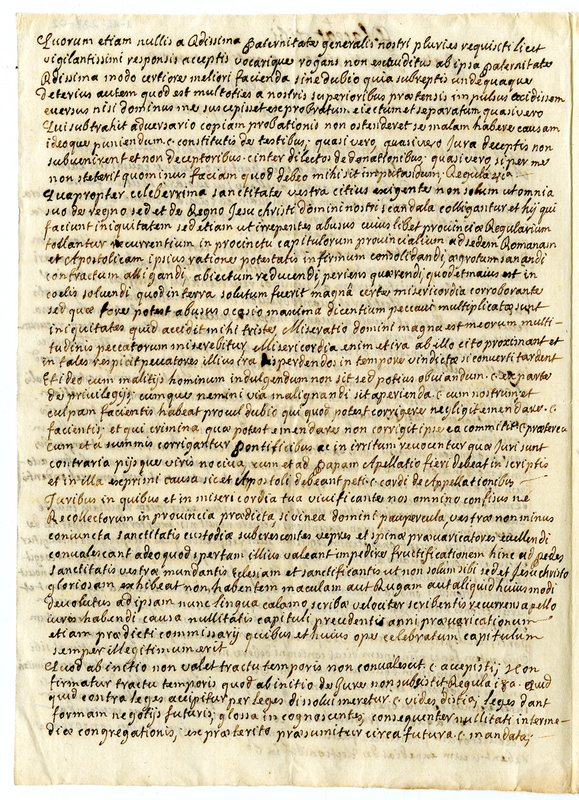 Quorum etiam nullis a Rdissima paternitate generalis nostri pluries requisiti licet
vigilantissimi responsis acceptis vocarique rogans non exauditus ab ipsa paternitate
Rdissima modo certiore meliori favenda sine dubio quia subreptis undequaque
deterius autem quod est multoties a nostris superioribus prætensis in pulsus excidissem
eversus nisi dominus me suscepisset exprobratum eiectum et separatum quasi vero
Qui subtrahit adversario copiam probationis non ostenderet se malam habere causam
ideoque puniendum. c. constitutis de testibus; quasi vero, quasi vero Jura deceptis non
subvenirent et non deceptoribus. c. inter dilectos de donationibus; quasi vero si per me
non steterit quominus faciam quod debeo mihi sit imputandum. Regula
Quapropter celeberrima sanctitate vestra citius exigente non solum ut omnia
suo de regno sed et de Regno Jesu christi domini nostri scandala colligantur et hij qui
faciunt iniquitatem sed etiam ut irrepentes abusus cuiuslibet provinciæ Regularium
tollantur recurrentium in procinctu capitulorum provincialium ad sedem Romanam
et Apostolicam ipsius ratione potestatis infirmum consolidandi, ægrotum sanandi
contractum alligandi, abiectum reducendi, periens quærendi, quod et maius est in
coelis solvendi quod in terra solutum fuerit magna certe misericordia corroborante
sed quæ fore potest abusus occasio maxima dicentium peccavi multiplicatæ sunt
iniquitates quid accidit mihi triste, Miseratio domini magna est meorum multi-
tudinis peccatorum miserebitur Misericordia enim et ira ab illo cito proximant et
in tales respicit peccatores illius ira disperdendos in tempore vindictæ si converti tardent
Et ideo cum malitijs hominum indulgendum non sit sed potius obviandum. c. ex parte
de privilegijs; cumque nemini via malignandi sit aperienda. c. cum nostrum et
culpam facientis habeat procul dubio qui quod potest corrigere negligit emendare. c.
facientis; et qui crimina quæ potest emendare non corrigit ipse ea committit c. præterea
cum et a summis corrigantur Pontificibus ac in irritum revocentur quæ Juri sunt
contraria pijsque viris nociva, cum et ad Papam Apellatio fieri debeat in scriptis
et in illa exprimi causa sic et Apostoli debeant peti. c. cordi de Appellationibus
Juribus in quibus et in misericordia tua vivificante nos omnino confisus ne
Recollectorum in provincia prædicta, si vinea domini paupercula, vestræ non minus
coniuncta sanctitatis custodiæ subcrescentes vepres et spinæ prævaricatores evellendi
convalescant adeo quod spertam illius valeant impedire fructificationem hinc ad pedes
sanctitatis vestræ mundantis Eclesiam et sanctificantis ut non solum sibi sed et Jesu christo
gloriosam exhibeat non habentem maculam aut Rugam aut aliquid huiusmodi
devolutus ad ipsam nunc lingua calamo scribæ velociter scribentis recurrens apello
iuræ habendi causa nullitatis capituli precedentis anni prævaricationum
etiam prædicti commissarij quibus et huius ope celebratum capitulum
semper illegitimum erit
Quod ab initio non valet tractu temporis non convalescit. c. accepisti; 
firmatur tractu temporis quod ab initio de Jure non subsistit. Regula 18a. Quid
quid contra leges accipitur per leges dissolvi meretur. c. vides dictia; leges dant
formam negotijs futuris; glossa in cognoscentes, consequenter nullitati interme-
diæ congregationis, ex præterito præsumitur circa futura. c. mandata;